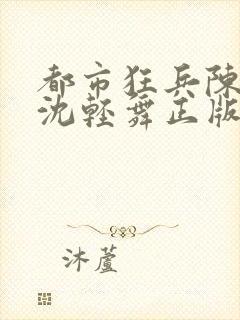 都市狂兵陳
沈輕舞正版
沐蘆